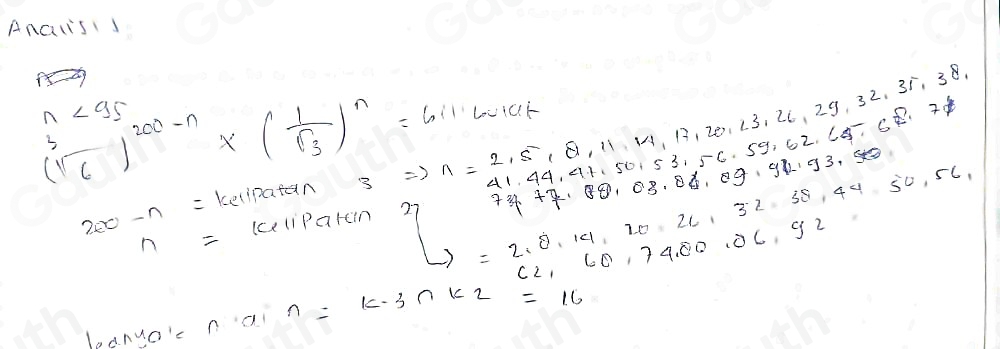 Analisis
n < 95
(∛6)^200-n × (1/√3)^n = bil bulat
200-n = kelipatan 3 => n = 2, 5, 8, 11, 14, 17, 20, 23, 26, 29, 32, 35, 38,
41, 44, 47, 50, 53, 56, 59, 62, 65, 68, 71
74, 77, 80, 83, 86, 89, 92, 93,
n = kelipatan 2
= 2, 8, 14, 20, 26, 32, 38, 44, 50, 56,
62, 68, 74, 80, 86, 92
banyak n ai n = K-3 ∩ K2 = 16